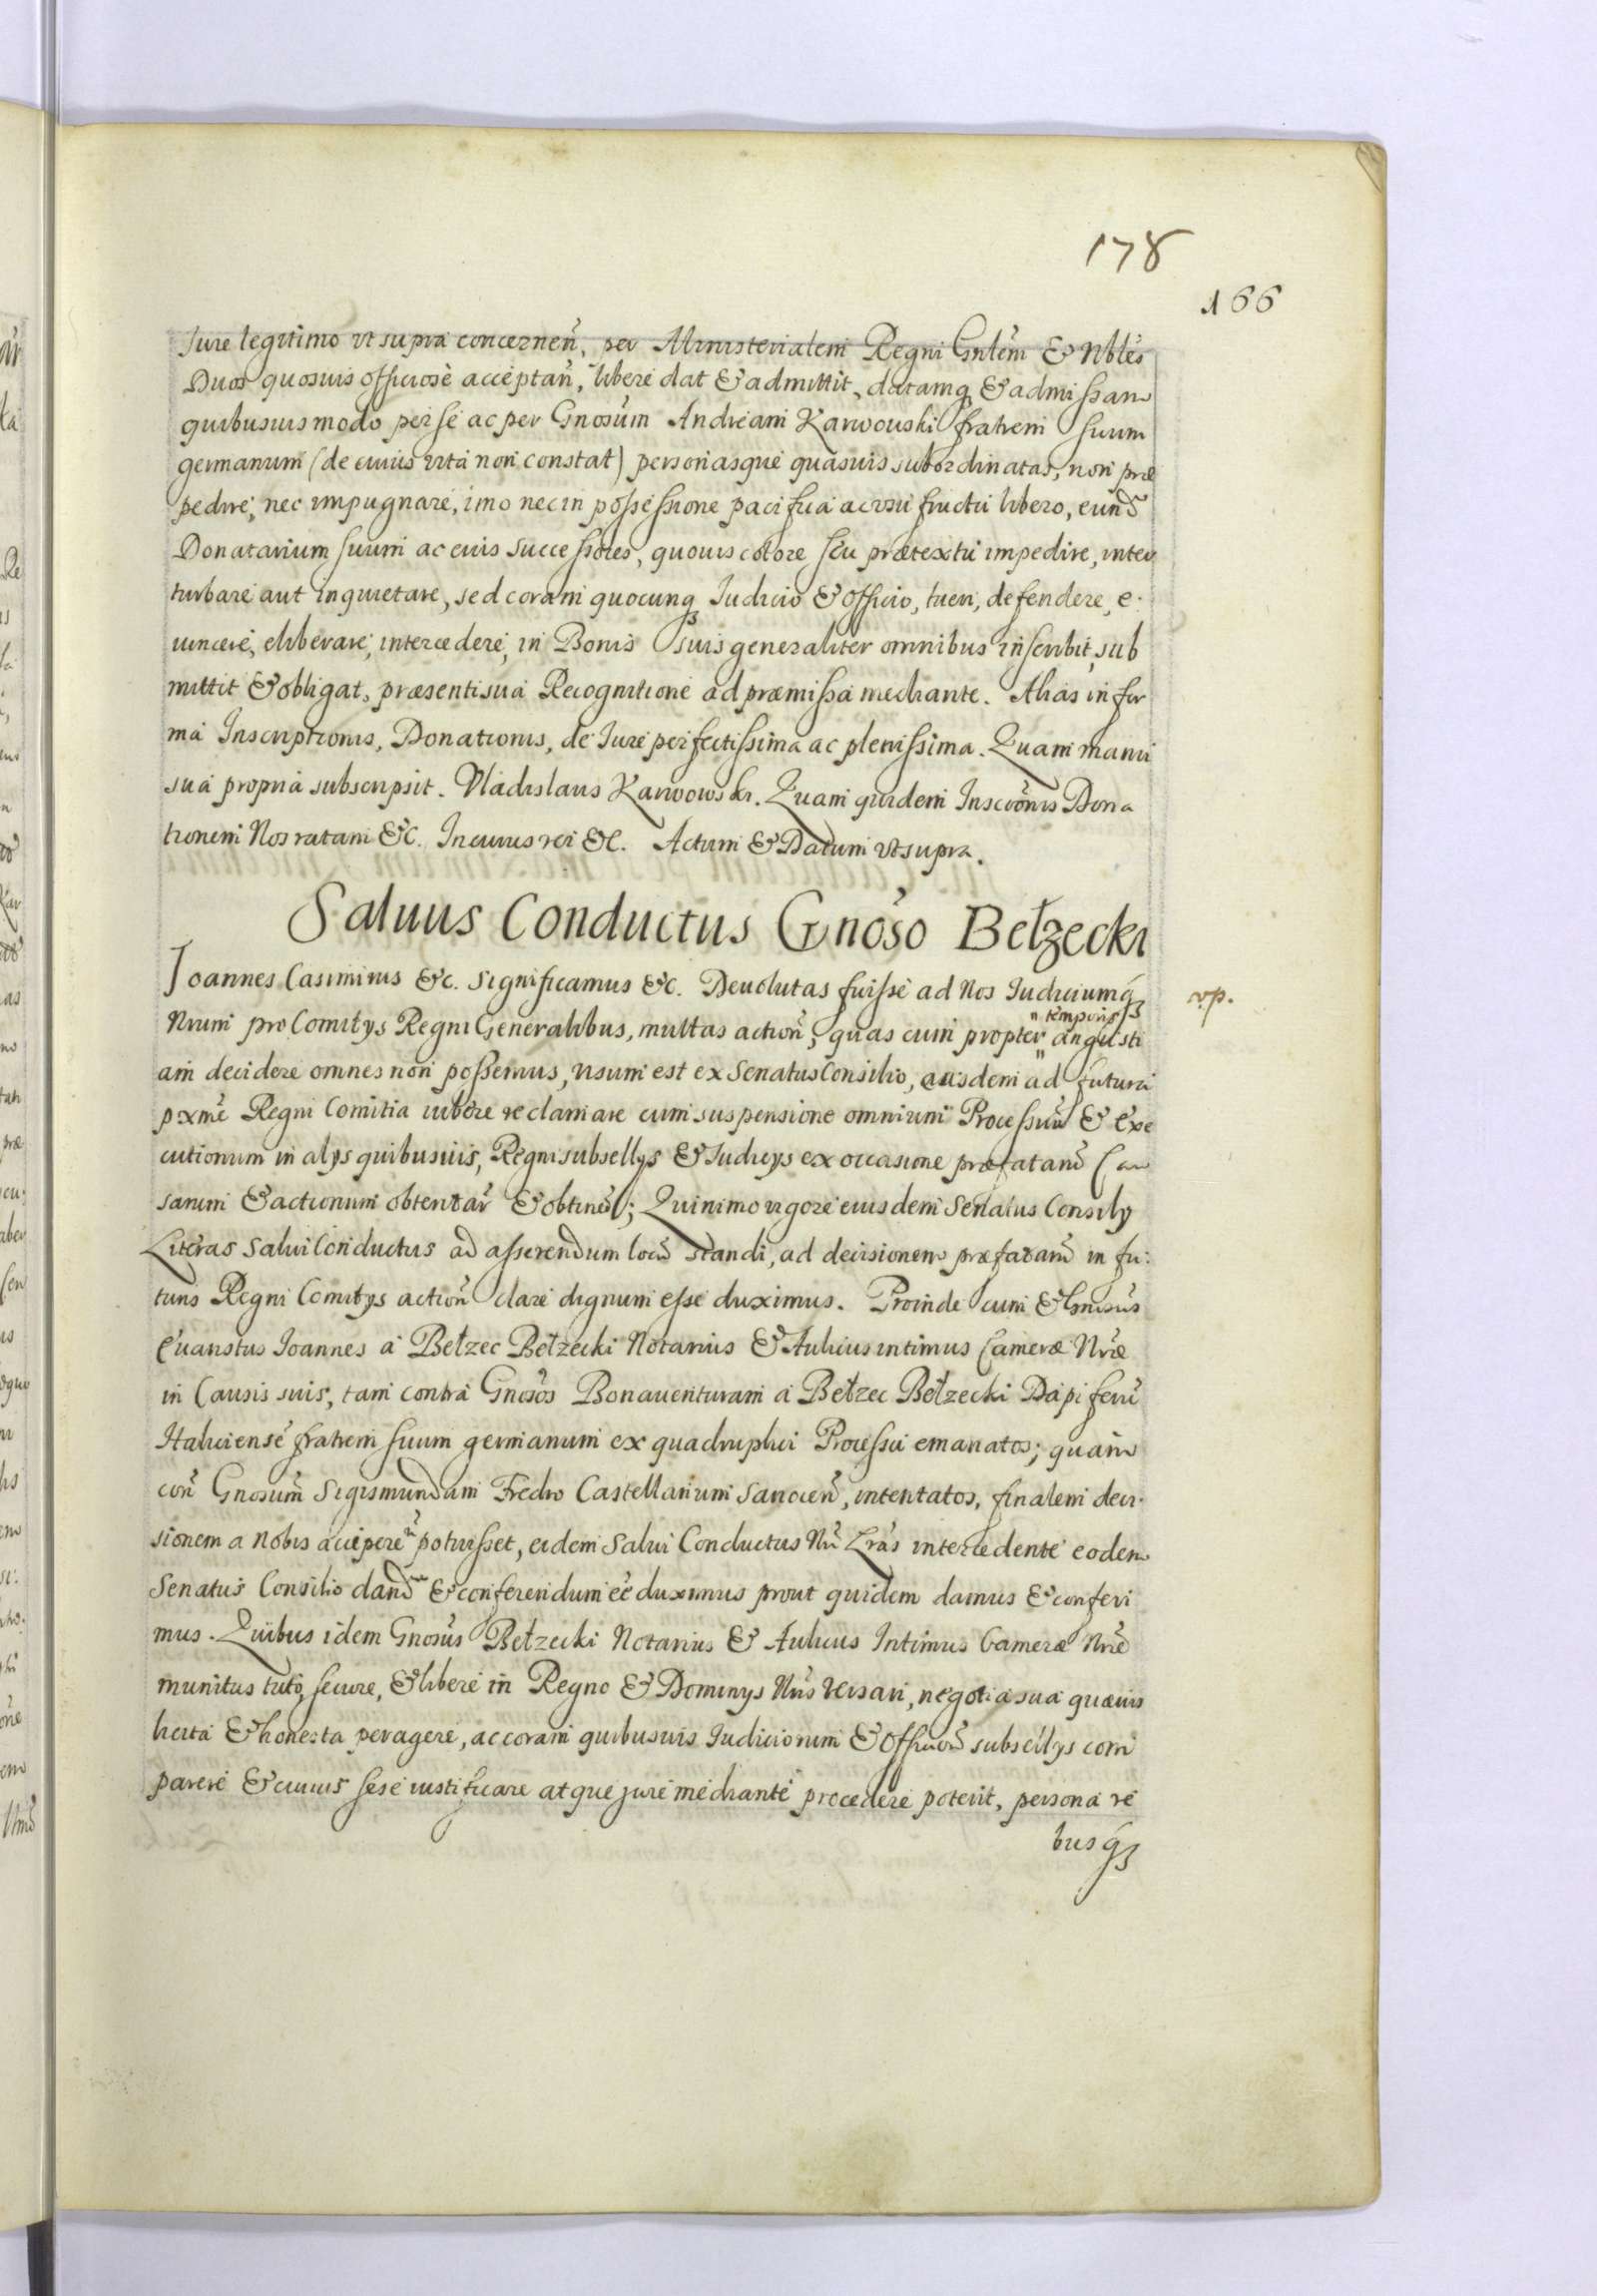 178
166
Iure legitimo vt supra concerneñ, per Ministerialem Regni Gnlem & Nbles
Duos quosuis officiose acceptañ, libere dat & admittit, datamq₃ & admissam
quibusuis modo per se ac per Gnosum Andream Karwouski fratrem suum
germanum (de cuius vita non constat) personasque quasuis subordinatas, non præ
pedire, nec impugnare, imo nec in possessione pacifica ac vsu fructu libero, eund̃
Donatarium suum ac eius successores, quouis colore seu prætextu impedire, inter
turbare aut inquietare, sed coram quocunq₃ Iudicio & Officio, tueri, defendere, e-
uincere, eliberare, intercedere, in Bonis suis generaliter omnibus inscribit, sub
mittit & obligat, præsenti sua Recognitione ad præmissa mediante. Alias in for
ma Inscriptionis, Donationis, de Iure perfectissima ac plenissima. Quam manu
sua propria subscripsit. Vladislaus Karwowski. Quam quidem Inscrõnis Dona
tionem Nos ratam &c. In cuius rei &c. Actum & Datum vt supra.
Saluus Conductus Gnoso Bełzecki
Ioannes Casimirus &c. Significamus &c. Deuolutas fuisse ad Nos Iudiciumq₃
vp.
Nrum pro Comitys Regni Generalibus, multas actioñ, quas cum propter "temporis" angusti
am decidere omnes non possemus, visum est ex Senatus Consilio, easdem ad futura
pxme Regni Comitia iubere reclamare cum suspensione omnium Processuũ & Exe
cutionum in alys quibusuis, Regni subsellys & Iudicys ex occasione præfatarũ Cau
sarum & actionum obtentar̃ & obtineñ; Quinimo vigore eiusdem Senatus Consily
Literas Salui Conductus ad asserendum locũ standi, ad decisionem præfatarũ in fu-
turis Regni Comitys actioñ dare dignum esse duximus. Proinde cum & Gnosus
Euaristus Ioannes a Bełzec Bełzecki Notarius & Aulicus intimus Cameræ Nræ
in Causis suis, tam contra Gnosos Bonauenturam a Bełzec Bełzecki Dapiferũ
Haliciense fratrem suum germanum ex quadruplici Processu emanatos; quam
coñ Gnosum Sigismundum Fredro Castellanum Sanoceñ, intentatos, finalem deci-
sionem a Nobis accipere ñ potuisset, eidem Salui Conductus Nr̃ Lras intercedente eodem
Senatus Consilio dand̃ & conferendum ee duximus prout quidem damus & conferi
mus. Quibus idem Gnosus Bełzecki Notarius & Aulicus Intimus Cameræ Nræ
munitus tuto, secure, & libere in Regno & Dominys Nris versari, negotia sua quæuis
licita & honesta peragere, ac coram quibusuis Iudiciorum & Officior̃ subsellys com
parere & cuiuis sese iustificare atque jure mediante procedere poterit, persona re
busq₃